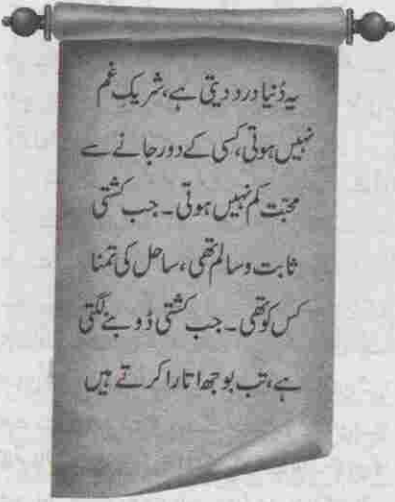 یہ دُنیا درد دیتی ہے، شریکِ غم
نہیں ہوتی، کسی کے دور جانے سے
محبّت کم نہیں ہوتی۔ جب کشتی
ثابت و سالم تھی، ساحل کی تمنا
کس کو تھی۔ جب کشتی ڈوبنے لگتی
ہے، تب بوجھ اتارا کرتے ہیں